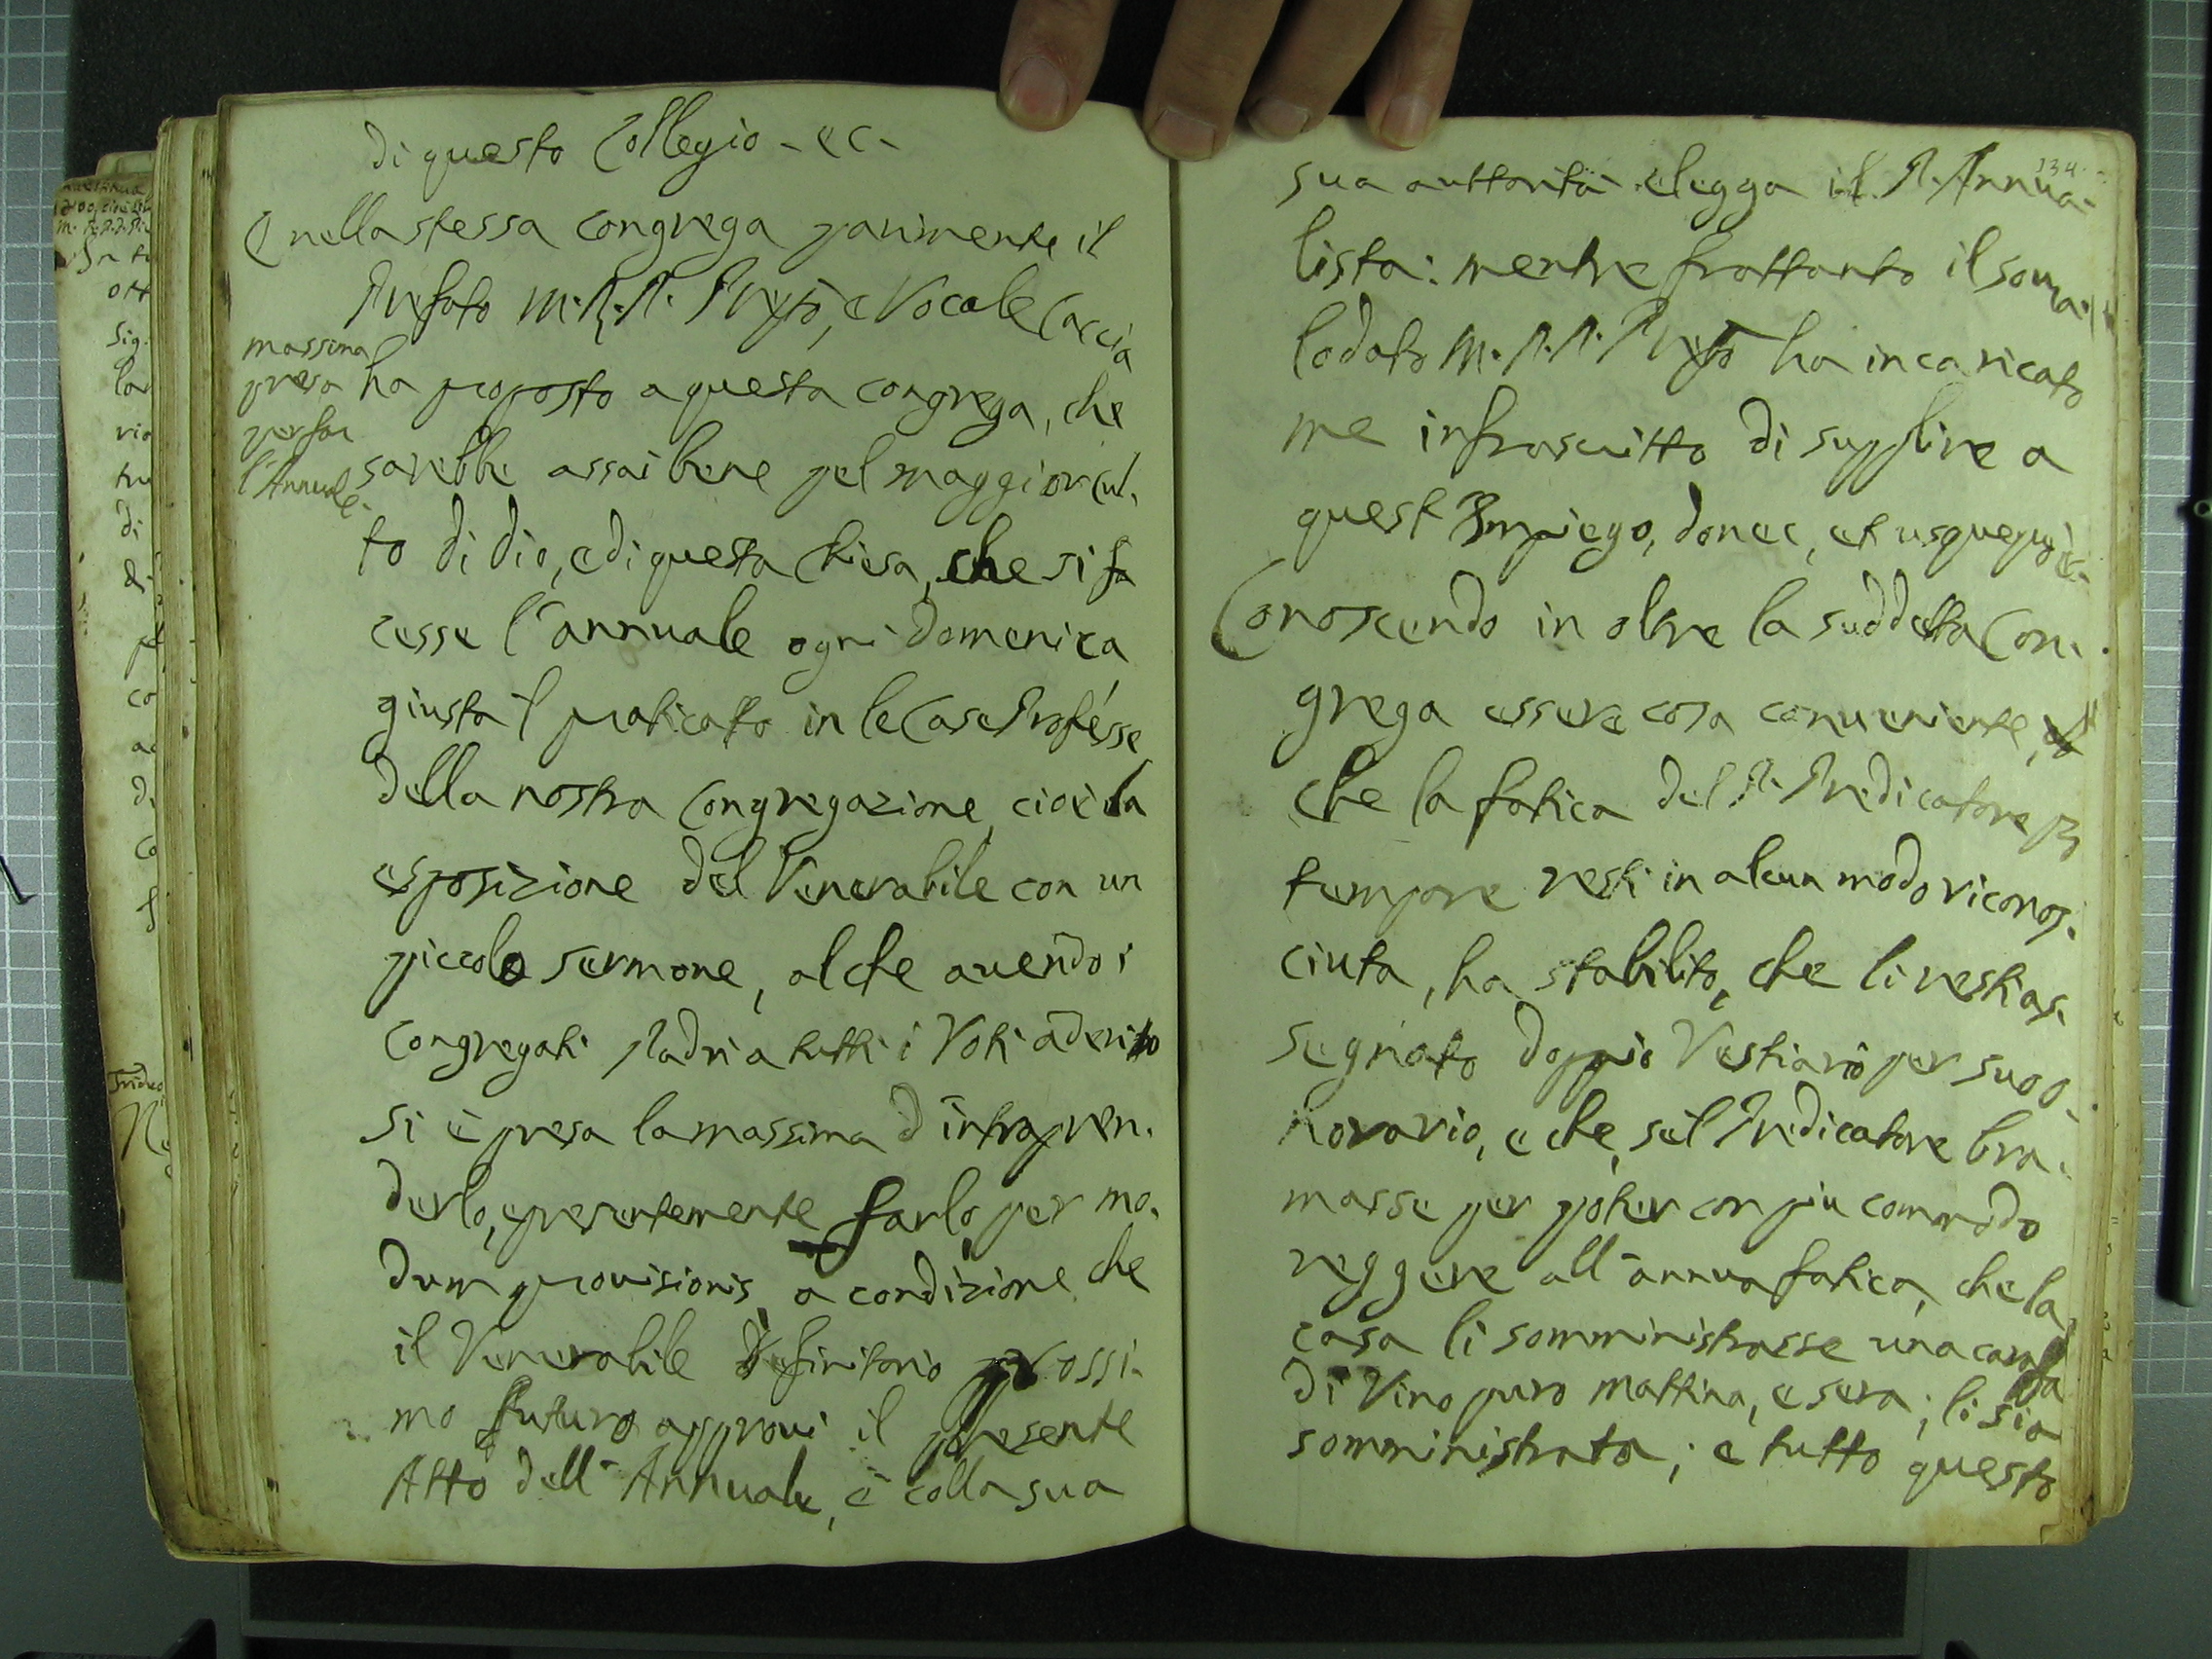 di questo Collegio - ec -
E nella stessa congrega parimente il
Prefato M. R. P. Prep.to, e Vocale Caccia
massima
presa
per far
l'Annuale.
ha proposto a questa congrega, che
sarebbe assai bene pel maggior cul-
to di dio, e di questa Chiesa, che si fa
cesse l'annuale ogni Domenica
giusta 'l praticato in le Case Professe
della nostra Congregazione, cioè la
esposizione del Venerabile con un
piccolo sermone, al che avendo i
Congregati Padri a tutti i Voti aderito
si è presa la massima d'intrapren-
derlo, e presentemente farlo, per mo-
dum provisionis, a condizione che
il Venerabile Definitorio prossi-
mo futuro approvi il presente
Atto dell'Annuale, e colla sua
134.
sua auttorità elegga il P. Annua-
lista: mentre frattanto il sovra-
lodato M. R. P. Prep.to ha incaricato
me infrascritto di supplire a
quest'Impiego, donec, et usquequo ec.
Conoscendo in oltre la suddetta Con-
grega essere cosa conveniente,
che la fatica del P. Predicatore p
tempore resti in alcun modo riconos-
ciuta, ha stabilito, che li resti as-
segnato doppio Vestiario per suo o-
norario, e che, se'l Predicatore bra-
masse per poter con piu commodo
reggere all'annua fatica, che la
casa li somministrasse una carafa
di Vino puro mattina, e sera, li sia
somministrata; e tutto questo